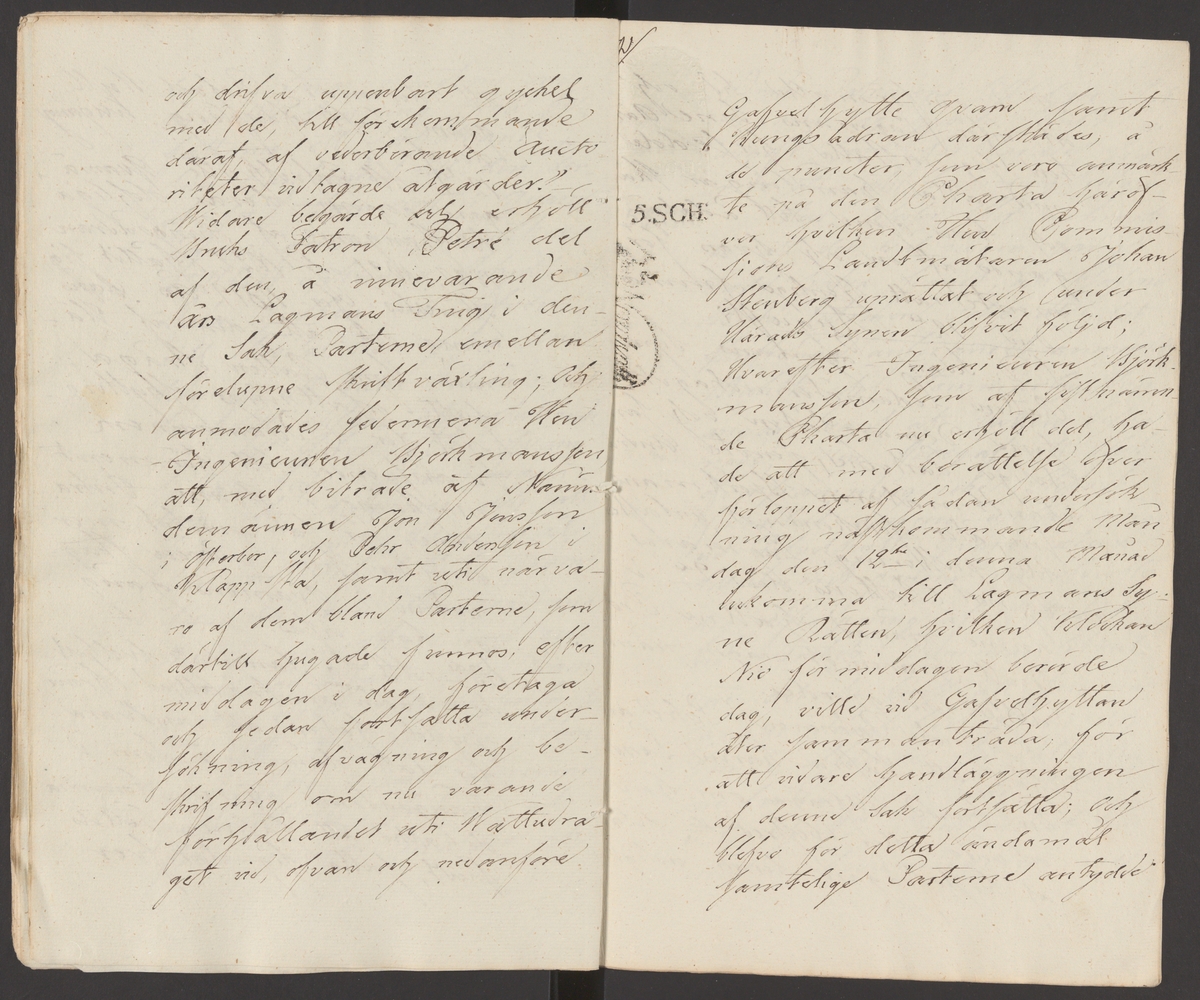 och drifva uppenbart gyckel
med de, till förekommande
däraf, af vederbörande Aucto
riteter vidtagne åtgärder."
Widare begärde och erhöll
Bruks Patron Petré del
af den, å innevarande
års Lagmans Ting i den-
ne Sak, Parterne emellan
förelupne skriftväxling; Och
anmodades sedermera Herr
Ingenieuren Björkmansson
att, med biträde af Nämn-
demännen Jon Jönsson
i Österbor, och Pehr Andersson i
Klappsta, samt uti närva-
ro af dem bland Parterne, som
därtill hugade finnos, efter
middagen i dag, företaga
och sedan fortsätta under-
sökning, afvägning och be-
skrifning om nu varande
förhållandet uti Wattudra-
get vid, ofvan och nedanföre
2/
5.SCH.
Gafvelhytte Qvarn samt
Kungsådran därstädes, å
de puncter, som voro anmärk-
te på den Charta häröf-
ver hvilken Herr Commis-
sions Landtmätaren Johan
Stenberg uprättat och under
Härads Synen blifvit följd;
Hvarefter Ingenieuren Björk-
mansson, som af sistnämn-
de Charta nu erhöll del, ha-
de att med berättelse öfver
förloppet af sådan undersök
ning nästkommande Mån
dag den 12te i denna Månad
inkomma till Lagmans Sy-
ne Rätten, hvilken klockan
Nio förmiddagen berörde
dag, ville vid Gafvelhyttan
åter sammanträda, för
att vidare handläggningen
af denne Sak fortsätta; och
blefvo för detta ändamål
Samtelige Parterne antydde